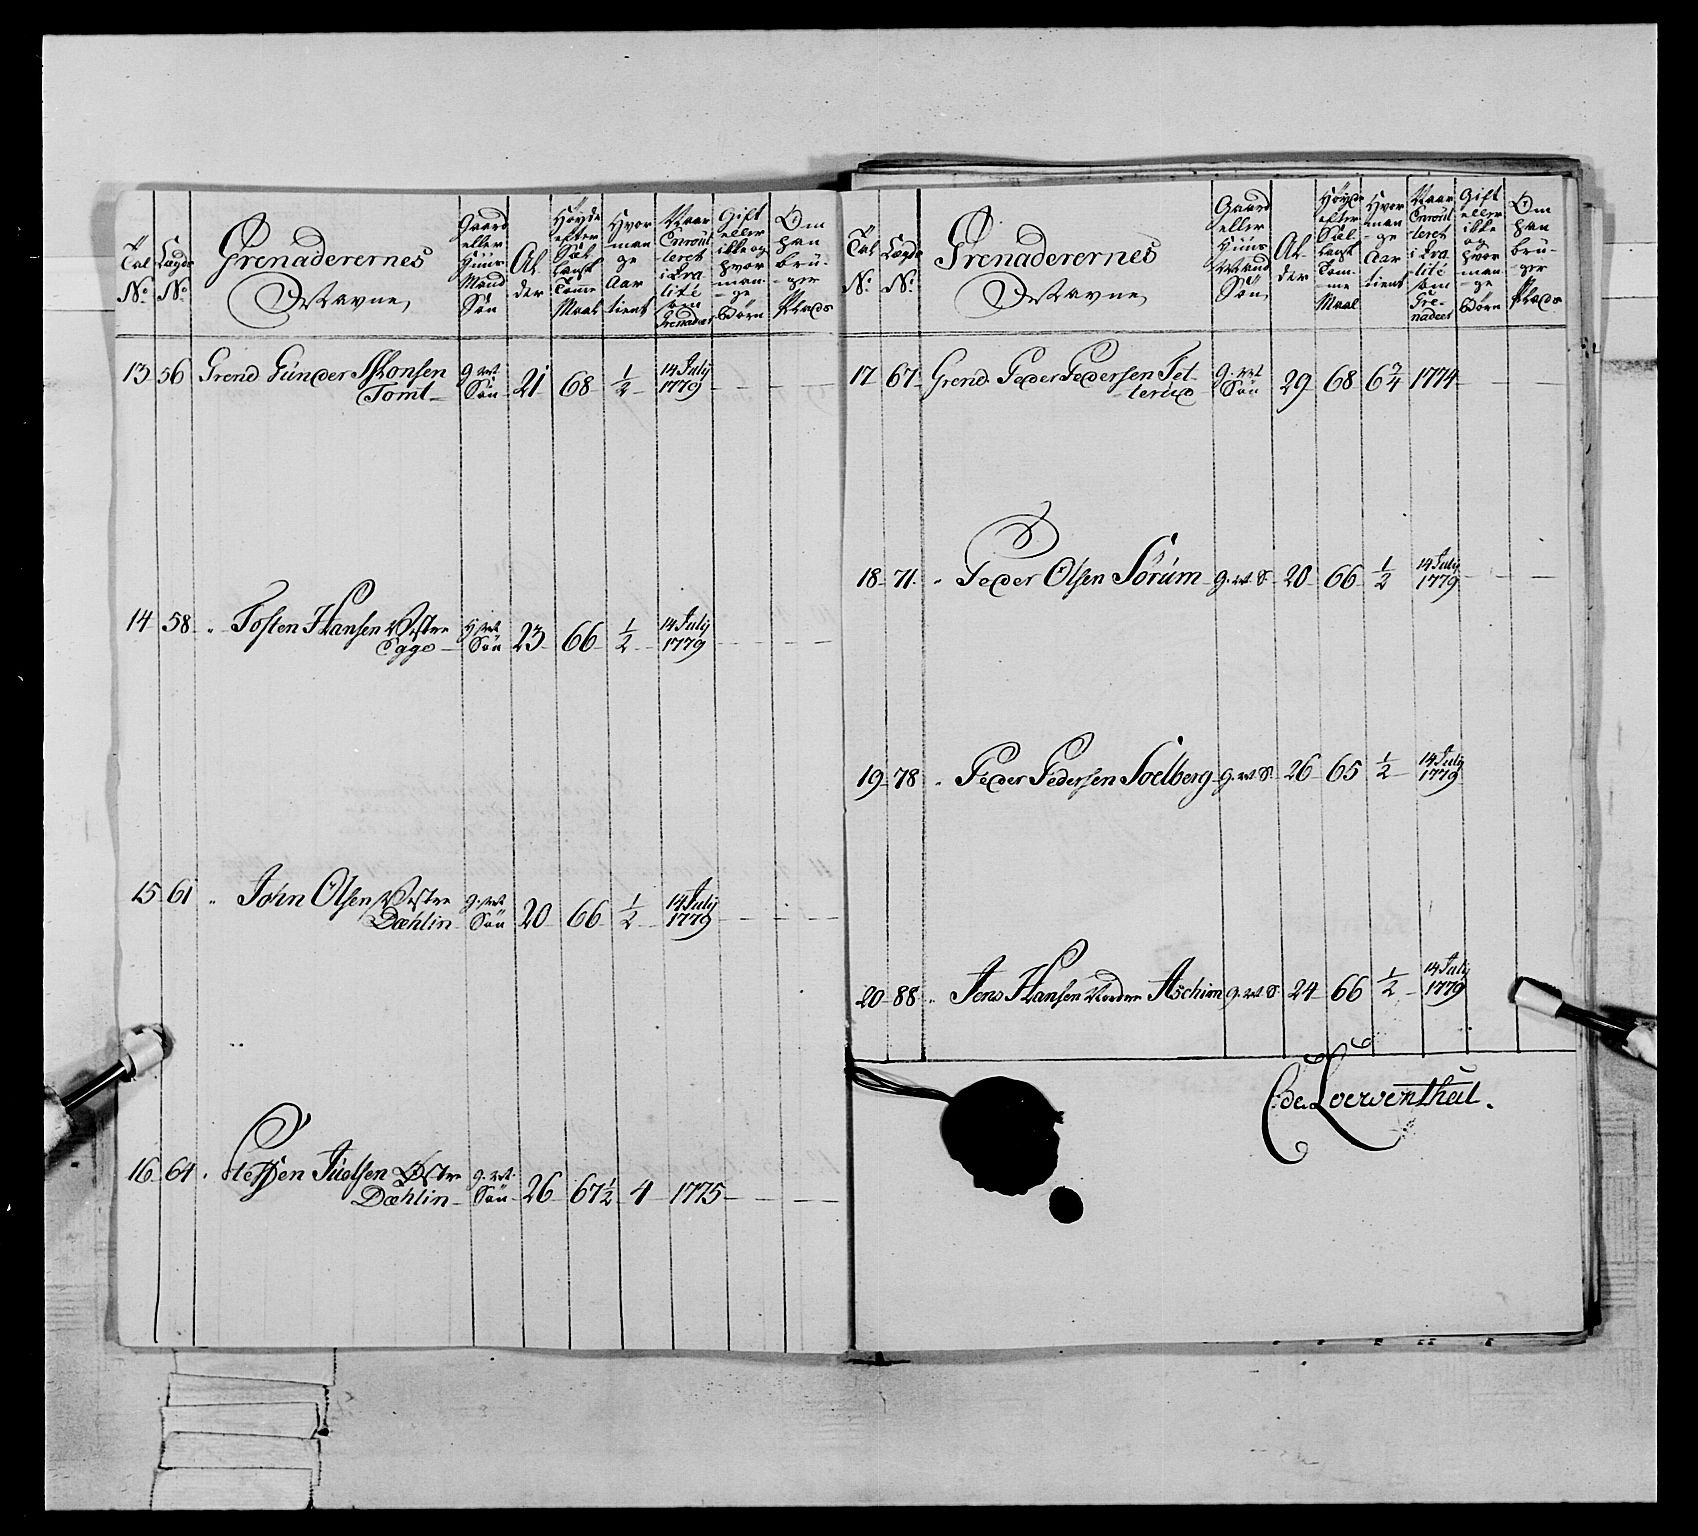 Tal No.
Lægds No.
Grenaderernes Navne
Gaard eller Huus Mand Søn
Al- der
Høyde efter Sæl- lands Tomme Maal
Hvor man- ge Aar tient
Naar Enroul- leret i Qva- lité som Grenadeer
Gift eller ikke og hvor man- ge Børn
Om han bru- ger Plads
13 56 Grend Gunder Monsen Tomt g. m. Søn 21 68 ½ 14 July 1779
14 58 " Tosten Hansen Vestre Egge H. m. Søn 23 66 ½ 14 July 1779
15 61 " John Olsen Vestre Dæhlin g. m. Søn 20 66 ½ 14 July 1779
16 64 " Steffen Juelsen Østre Dæhlin g. m. Søn 26 67½ 4 1775
Tal No.
Lægds No.
Grenaderernes Navne
Gaard eller Huus Mand Søn
Al- der
Høyde efter Sæl- lands Tom- me Maal
Hvor man- ge Aar tient
Naar Enroul- leret i Qva- lité som Gre- nadeer
Gift eller ikke og hvor man- ge Børn
Om han bru- ger Plads
17 67 Grend. Peder Pedersen Tet- terud g. m. Søn 29 68 6¾ 1774
18 71. " Peder Olsen Sörum g. m. S. 20 66 ½ 14 July 1779
19 78 " Peder Pedersen Soelberg g. m. S. 26 65 ½ 14 July 1779
20 88 " Jens Hansen Nordre Aschim g. m. S. 24 66 ½ 14 July 1779
C. de Loewenthal.